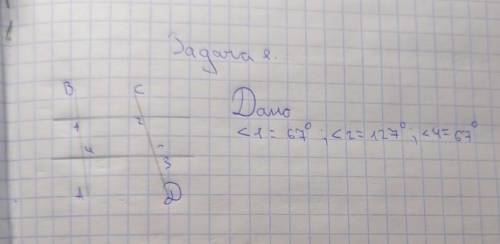 Задача 2.
B C
1 2
4
3
A D
Дано
<1 = 67° ; <2 = 127° ; <4 = 67°